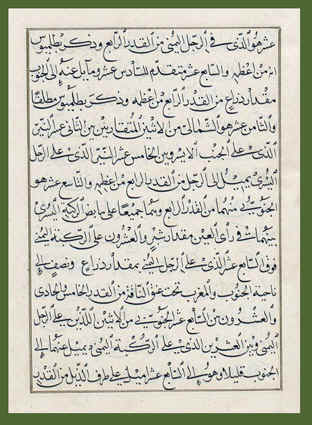 عشر هو الذى فى الرجل اليمنى من القدر الرابع وذكر بطلميوس
انه من اعظمه والسابع عشر يتقدم للسادس عشر ومايل عنه الى الجنوب
مقدار ذراع من القدر الرابع من اعظمه وذكر بطلميوس مطلقا
والثامن عشر هو الشمالى من الاثنين المتقاربين من التالى عشر النير
الذى على الجنب الايسر وبين الخامس عشر النير الذى على الرجل
اليسرى يميل الى الرجل من القدر الرابع من اعظمه والتاسع عشر هو
الجنوبى منهما من القدر الرابع وهما جميعا على مابض الركبة اليسرى
بينهما فى رأى العين مقدار شبر والعشرون على الركبة اليمنى
فوق السابع عشر الذى على الرجل اليمنى بمقدار ذراع ونصف الى
ناحية الجنوب والمغرب تحت عنق الناقة من القدر الخامس والحادى
والعشرون من السابع عشر الجنوبى من الاثنين اللذين على الرجل
اليمنى وبين العشرين الذى على الركبة اليمنى ويميل عنهما الى
الجنوب قليلا وهو الى السابع عشر اميل على طرف الذيل من القدر